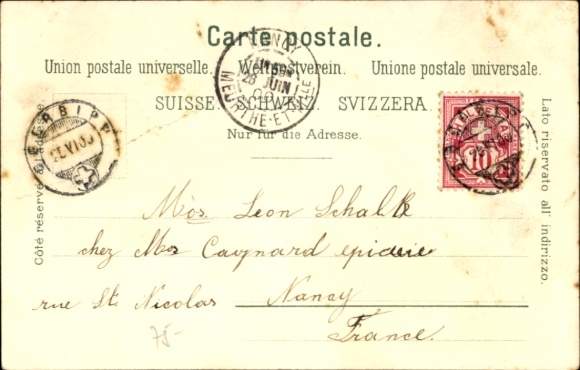 Carte postale.
Union postale universelle. Weltpostverein. Unione postale universale.
SUISSE. SCHWEIZ. SVIZZERA.
Nur für die Adresse.
Côté réservé à l'adresse
Lato riservato all' indirizzo.
NANCY
26 JUIN
MEURTHE-ET-MELLE
10
Leon Schalk
chez Caynard epicerie
rue St Nicolas Nancy
France.
75-